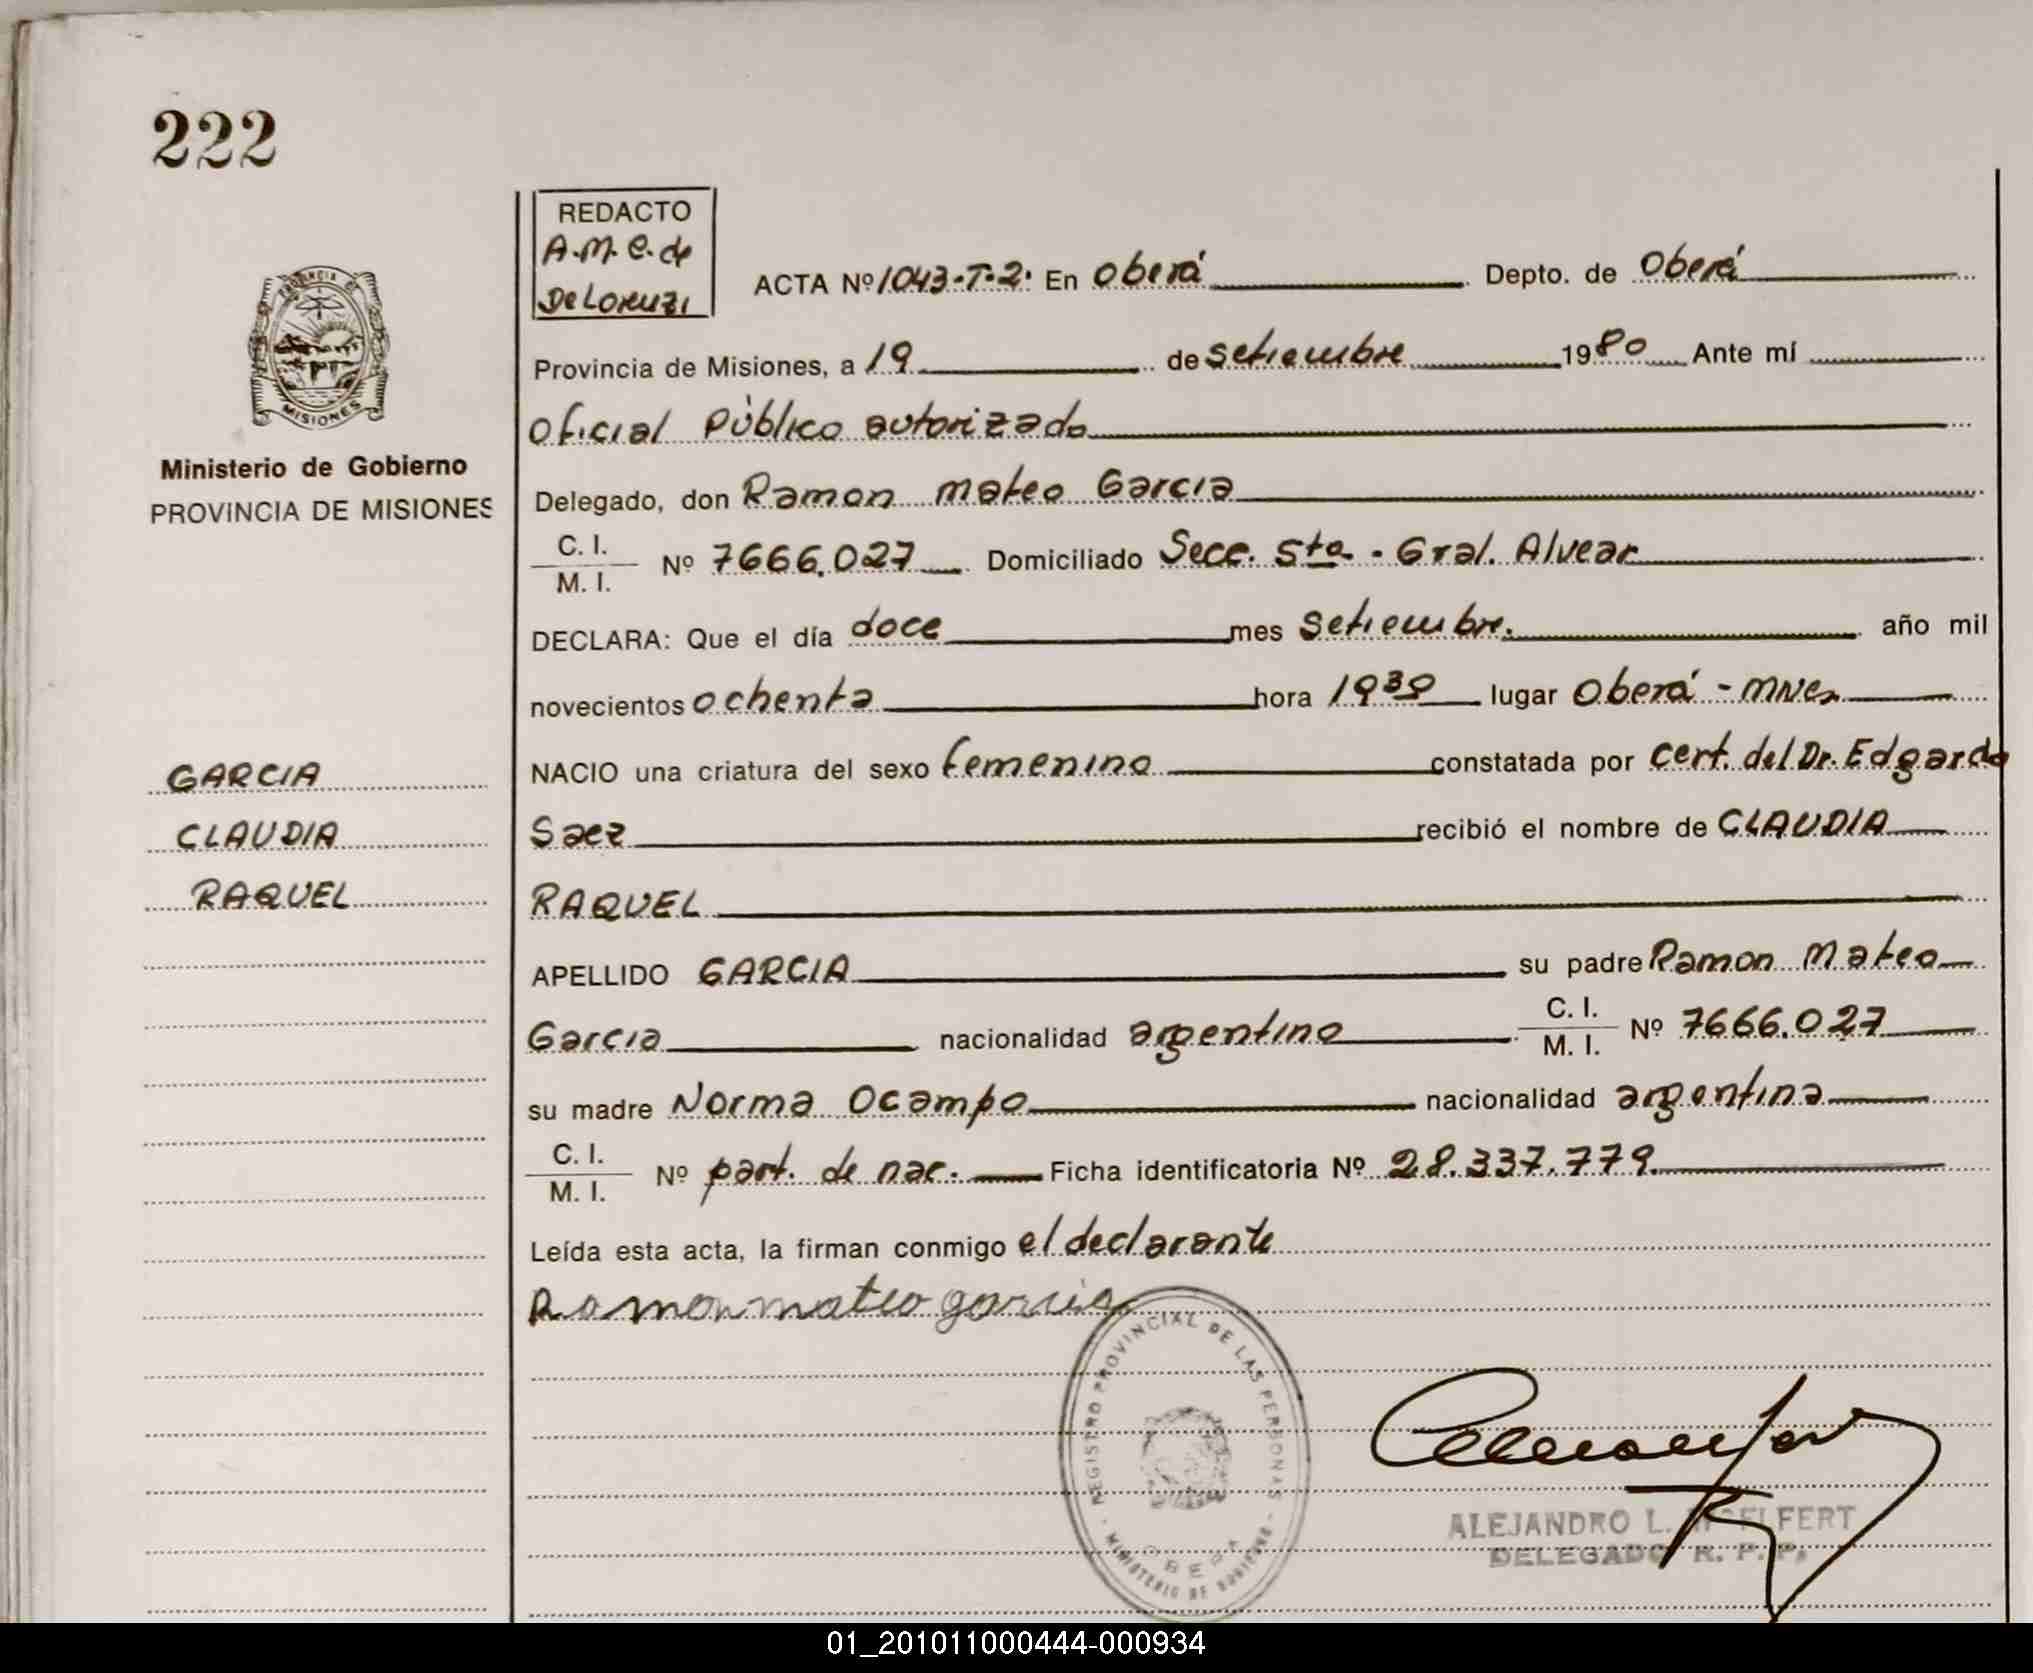 222
REDACTO
A.M.C. de
De Loruzi
ACTA Nº 1043-T-2. En Oberá Depto. de Oberá
Provincia de Misiones, a 19 de setiembre 1980 Ante mí
Oficial Público autorizado
PROVINCIA DE
MISIONES
Ministerio de Gobierno
PROVINCIA DE MISIONES
Delegado, don Ramon Mateo Garcia
C. I.
M. I. Nº 7666.027 Domiciliado Secc. 5ta - Gral. Alvear
DECLARA: Que el día doce mes setiembre. año mil
novecientos ochenta hora 19 30 lugar Oberá - Mnes
GARCIA
CLAUDIA
RAQUEL
NACIO una criatura del sexo femenino constatada por cert. del Dr. Edgardo
Saez recibió el nombre de CLAUDIA
RAQUEL
APELLIDO GARCIA su padre Ramon Mateo
Garcia nacionalidad argentino C. I. M. I. Nº 7666.027
su madre Norma Ocampo nacionalidad argentina
C. I.
M. I. Nº part. de nac. Ficha identificatoria Nº 28.337.779.
Leída esta acta, la firman conmigo el declarante
Ramon mateo garcia
REGISTRO PROVINCIAL DE LAS PERSONAS
MINISTERIO DE GOBIERNO
OBERA
ALEJANDRO L.
DELEGADO R. P. P.
01_201011000444-000934